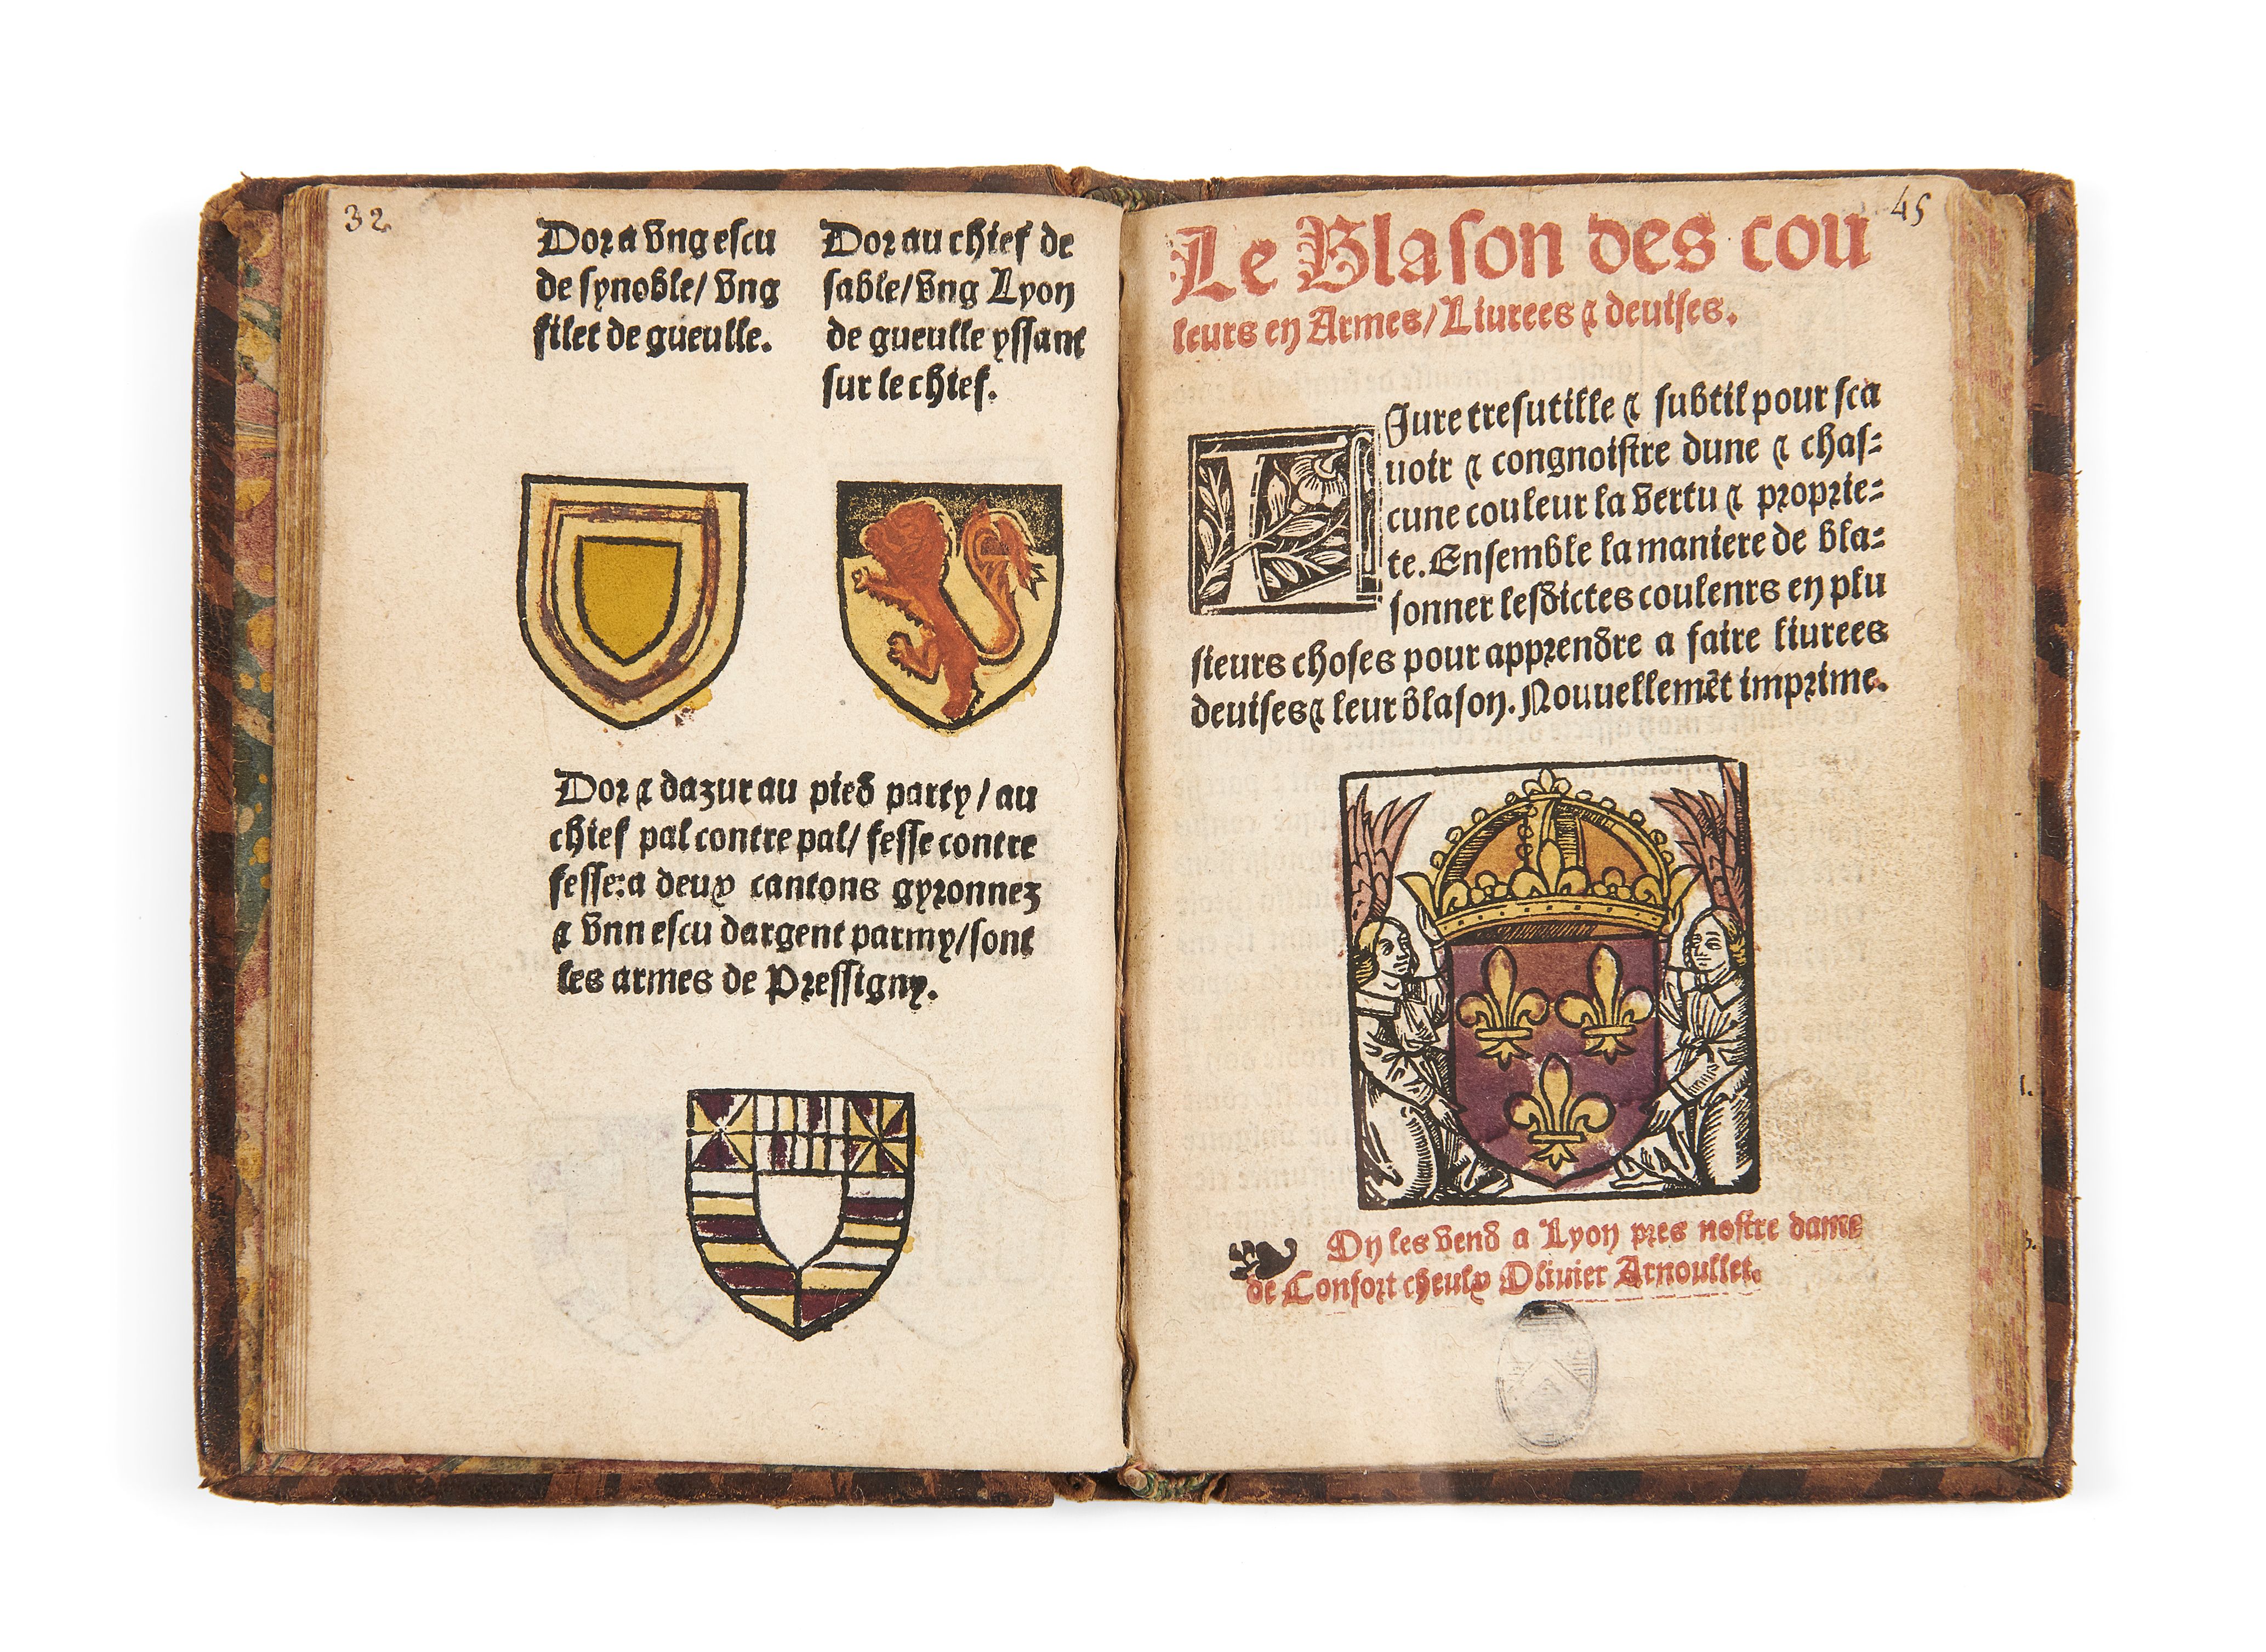 32
Dor a vng escu
de synoble/ vng
filet de gueulle.
Dor au chief de
sable/vng Lyon
de gueulle yssant
sur le chief.
Dor & dazur au pied party/ au
chief pal contre pal/ fesse contre
fesse:a deux cantons gyronnez
& vnn escu dargent parmy/sont
les armes de Pressigny.
45
Le Blason des cou
leurs en Armes/Liurees & deuises.
Liure tresutille & subtil pour sca
uoir & congnoistre dune & chas=
cune couleur la vertu & proprie=
te. Ensemble la maniere de bla=
sonner lesdictes coulenrs en plu
sieurs choses pour apprendre a faire liurees
deuises & leur blason. Nouuellemēt imprime.
On les vend a Lyon pres nostre dame
de Confort cheulx Oliuier Arnoullet.